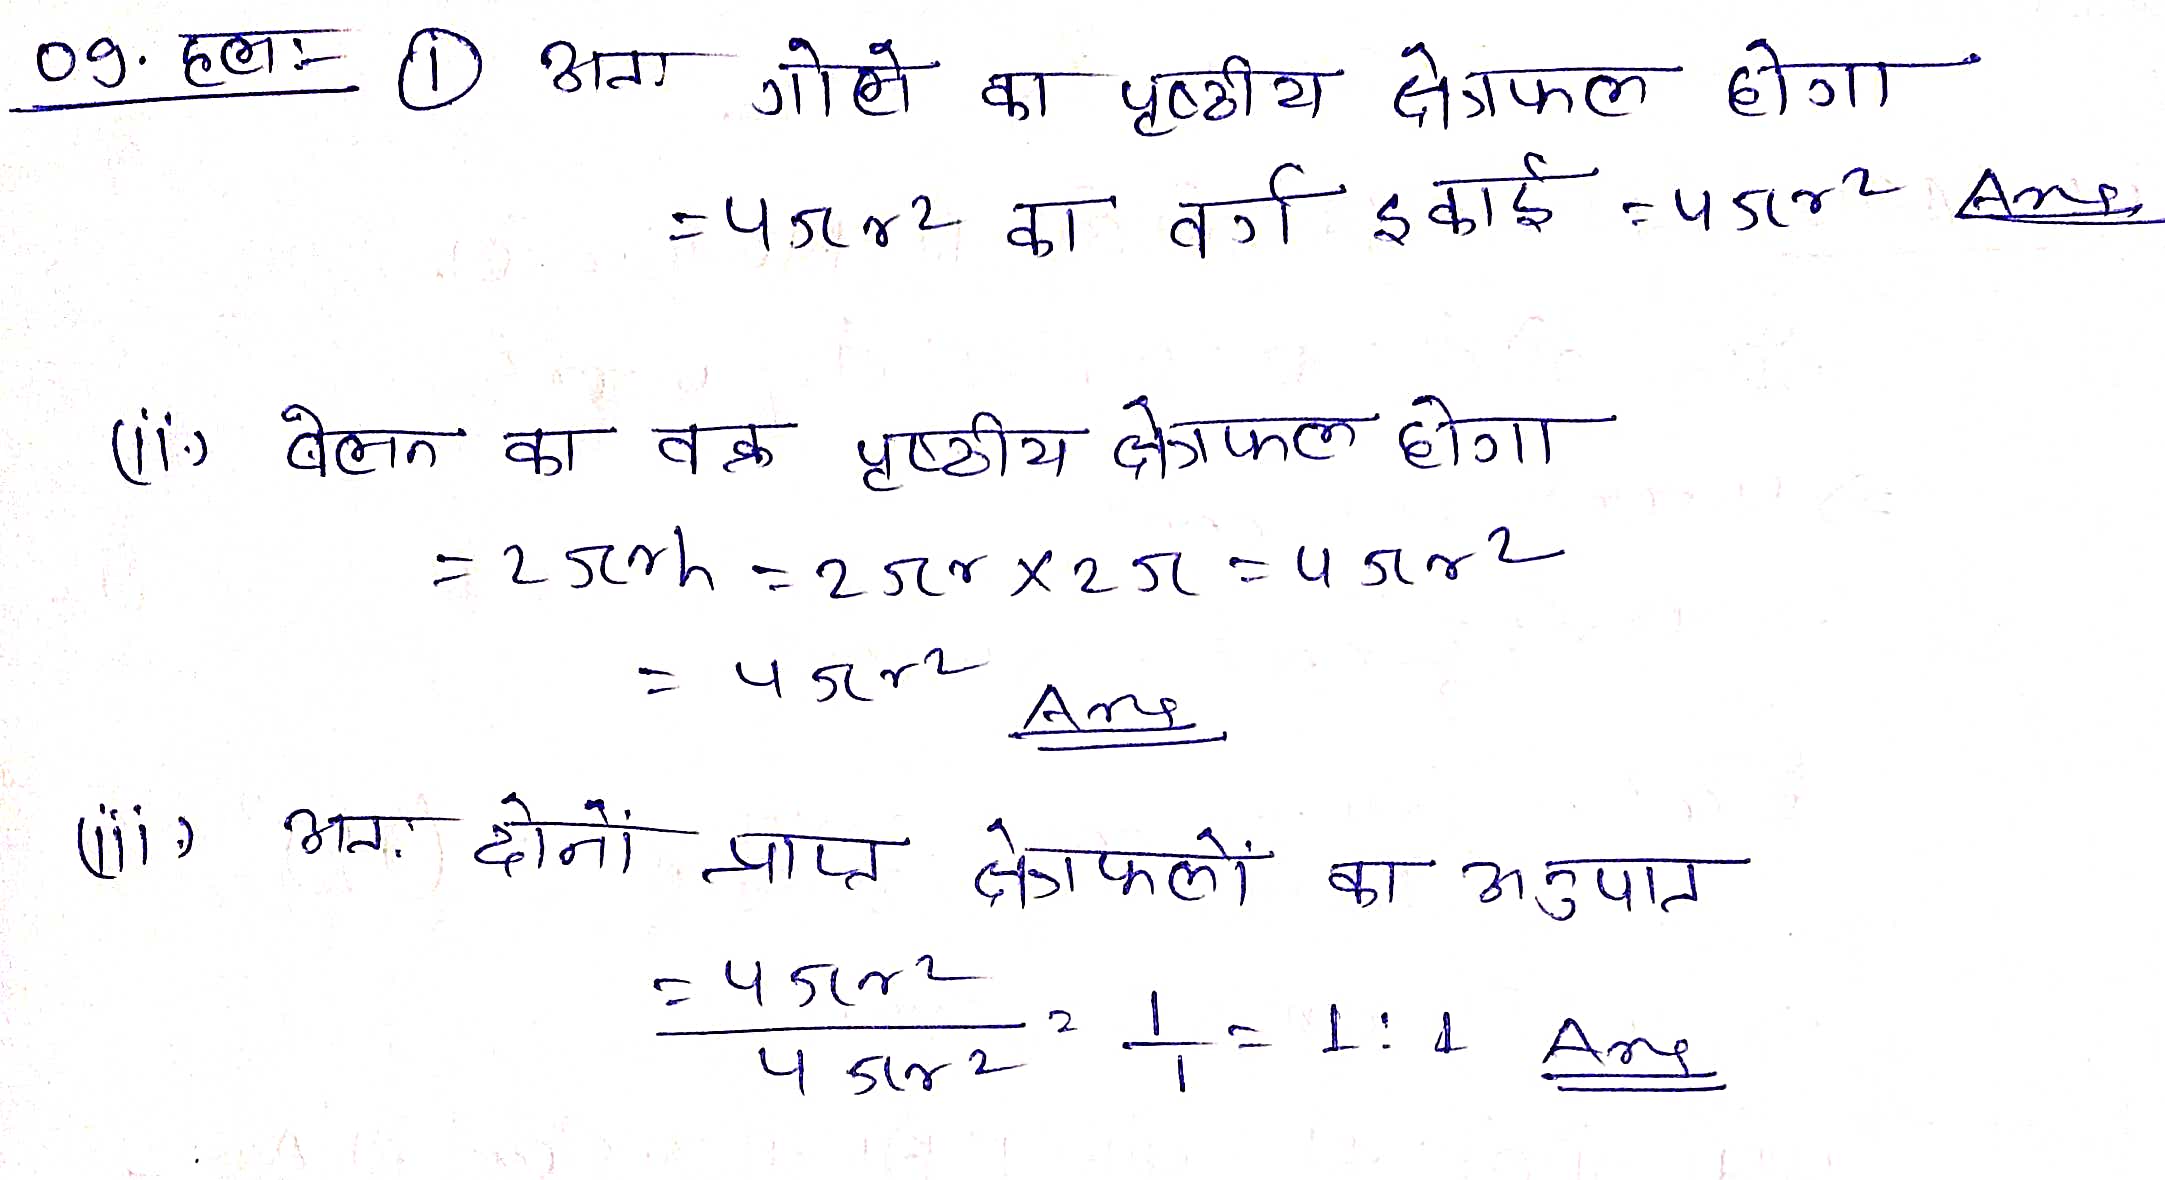 09. हलः- ① अतः गोले का पृष्ठीय क्षेत्रफल होगा
= 4πr2 का वर्ग इकाई = 4πr2 Ans
(ii) बेलन का वक्र पृष्ठीय क्षेत्रफल होगा
= 2πrh = 2πr × 2π = 4πr2
= 4πr2 Ans
(iii) अतः दोनों प्राप्त क्षेत्रफलों का अनुपात
= 4πr2 / 4πr2 = 1/1 = 1:1 Ans